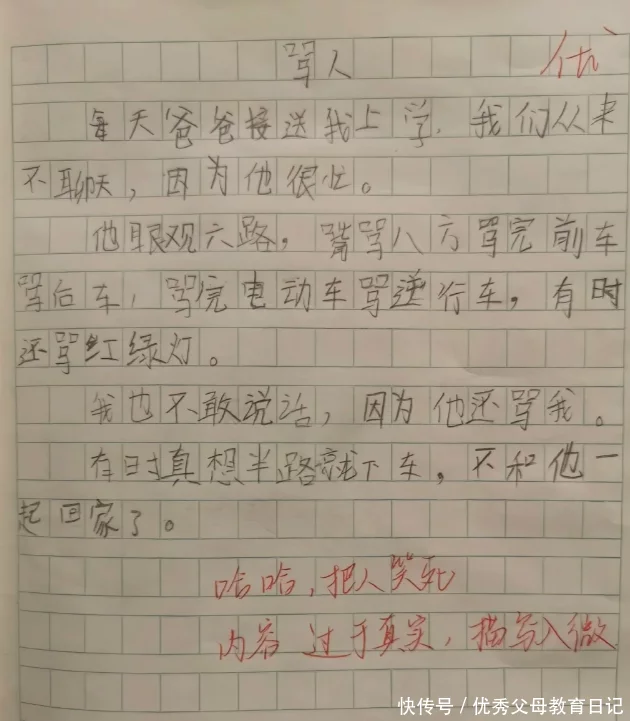 骂人
优
每天爸爸接送我上学.我们从来
不聊天，因为他很忙。
他眼观六路，嘴骂八方骂完前车
骂后车，骂完电动车骂逆行车，有时
还骂红绿灯。
我也不敢说话，因为他还骂我。
有时真想半路就下车，不和他一
起回家了。
哈哈，把人笑死
内容过于真实，描写入微
快传号／优秀父母教育日记